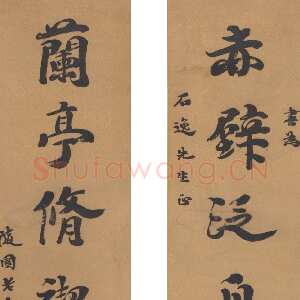 書為
赤壁泛
石逸先生正
蘭亭脩禊
Shufawang.cn